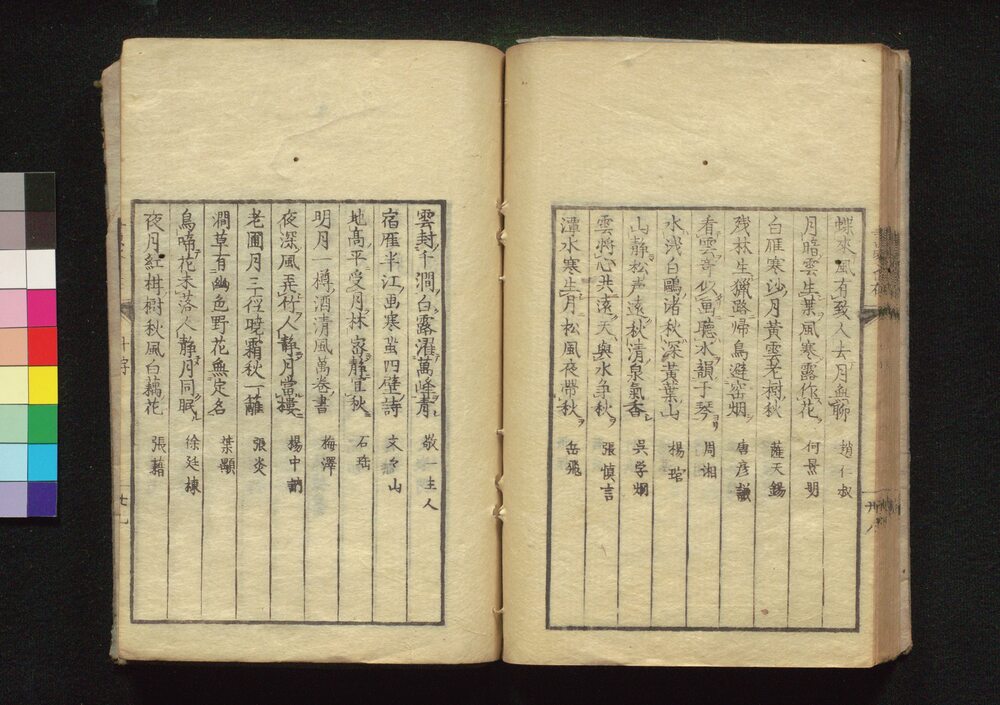 蝶来風有致人去月無聊 趙仁叔
月暗雲生葉風寒露作花 何景明
白雁寒沙月黄雲老樹秋 薩天錫
残林生猟路帰鳥避窓烟 唐彦謙
看雲奇似画聴水韻于琴 周湘
水浅白鷗渚秋深黄葉山 楊琯
山静松声遠秋清泉気香 呉学烱
雲将心共遠天与水争秋 張慎言
潭水寒生月松風夜帯秋 岳飛
雲封千澗白露濯萬峰青 敬一主人
宿雁半江画寒蛩四壁詩 文々山
地高平受月林密静宜秋 石岳
明月一樽酒清風萬巻書 梅澤
夜深風弄竹人静月當樓 楊中訥
老圃月三径暁霜秋一籬 張炎
澗草有幽色野花無定名 葉顒
鳥啼花未落人静月同眠 徐廷棟
夜月紅柑樹秋風白藕花 張籍
十字